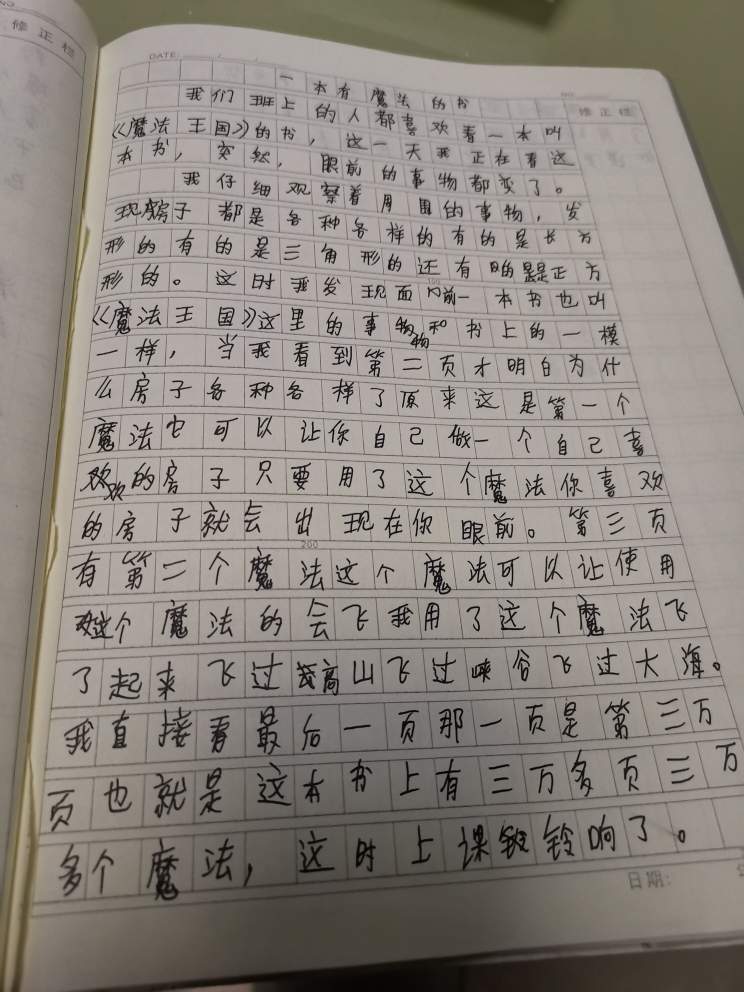 修正栏
DATE:
一本有魔法的书
修正栏
我们班上的人都喜欢看一本叫
《魔法王国》的书，这一天我正在看这
本书，突然，眼前的事物都变了。
我仔细观察着周围的事物，发
现房子都是各种各样的有的是长方
形的有的是三角形的还有的是正方
形的。这时我发现面前一本书也叫
《魔法王国》这里的事物和书上的一模
一样，当我看到第二页才明白为什
么房子各种各样了原来这是第一个
魔法它可以让你自己做一个自己喜
欢的房子只要用了这个魔法你喜欢
的房子就会出现在你眼前。第三页
200
有第二个魔法这个魔法可以让使用
这个魔法的会飞我用了这个魔法飞
了起来飞过高山飞过峡谷飞过大海。
我直接看最后一页那一页是第三万
页也就是这本书上有三万多页三万
多个魔法，这时上课铃响了。
日期: